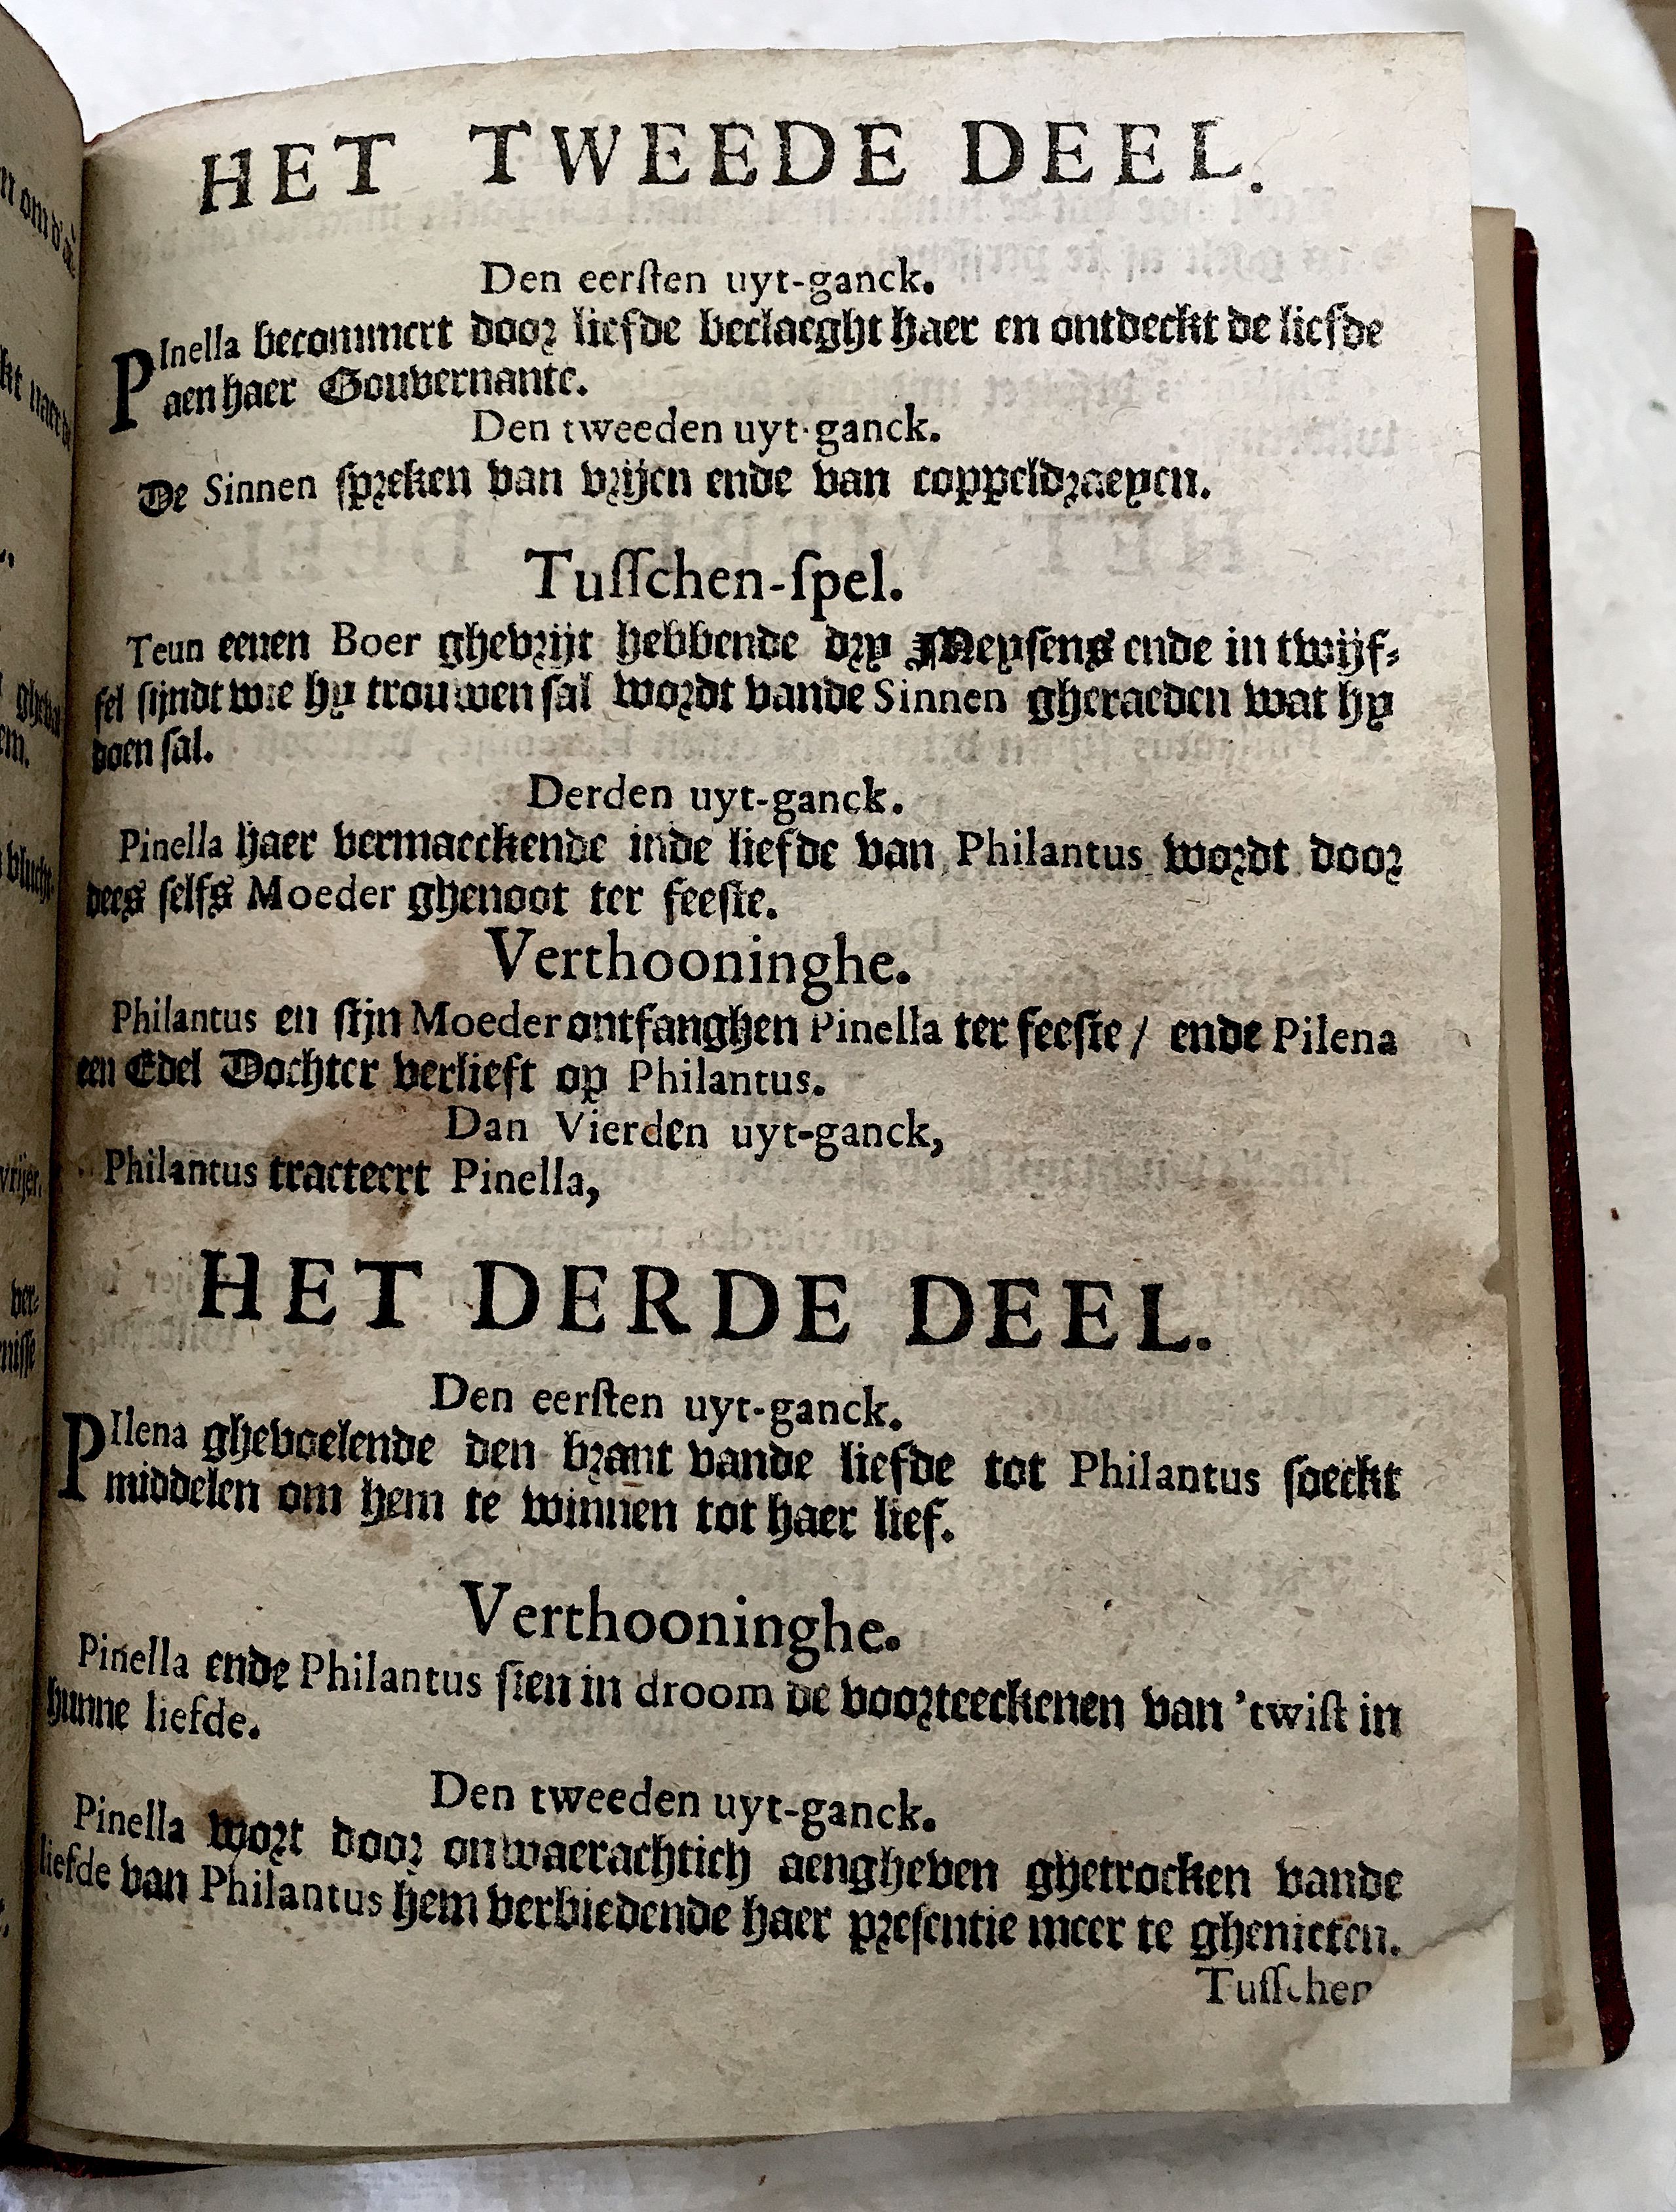 HET TWEEDE DEEL.
Den eerſten uyt-ganck.
PInella becommert door liefde beclaeght haer en ontdeckt de liefde
aen haer Gouvernante.
Den tweeden uyt-ganck.
De Sinnen ſpreken van vrijen ende van coppeldraeyen.
Tuſſchen-ſpel.
Teun eenen Boer ghevrijt hebbende dry Meyſens ende in twijf-
fel ſijndt wie hy trouwen ſal wordt vande Sinnen gheraeden wat hy
doen ſal.
Derden uyt-ganck.
Pinella haer vermaeckende inde liefde van Philantus wordt door
dees ſelfs Moeder ghenoot ter feeſte.
Verthooninghe.
Philantus en ſijn Moeder ontfanghen Pinella ter feeſte / ende Pilena
een Edel Dochter verlieft op Philantus.
Dan Vierden uyt-ganck,
Philantus tracteert Pinella,
HET DERDE DEEL.
Den eerſten uyt-ganck.
PIlena ghevoelende den brant vande liefde tot Philantus ſoeckt
middelen om hem te winnen tot haer lief.
Verthooninghe.
Pinella ende Philantus ſien in droom de voorteeckenen van 'twiſt in
hunne liefde.
Den tweeden uyt-ganck.
Pinella wort door onwaerachtich aengheven ghetrocken vande
liefde van Philantus hem verbiedende haer preſentie meer te ghenieten.
Tuſſchen